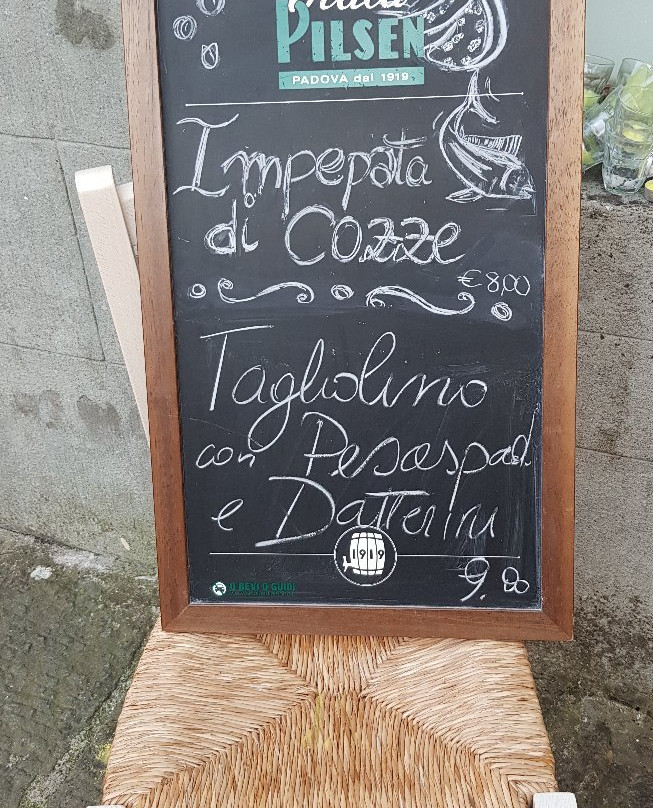 PILSEN
PADOVA dal 1919
Impepata
di Cozze
€ 8,00
Tagliolino
con Pescespad
e Datterini
1919
9.00
O BEVI O GUIDI